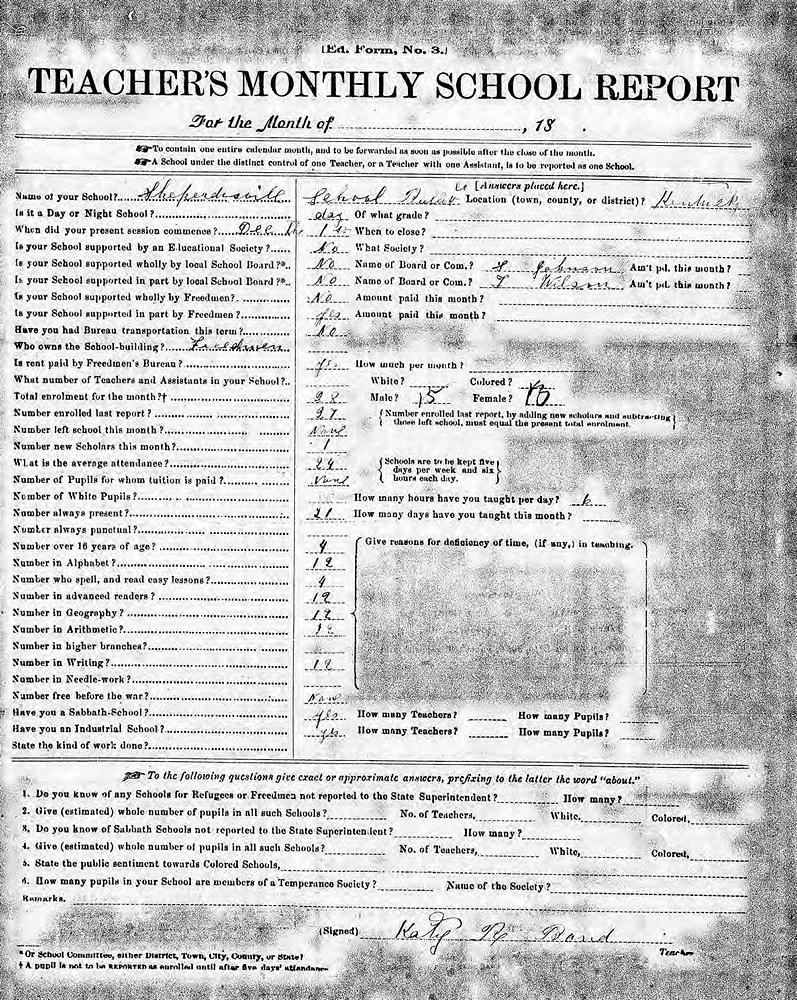 [Ed. Form, No. 3.]
TEACHER'S MONTHLY SCHOOL REPORT
For the Month of ............, 18 .
To contain one entire calendar month, and to be forwarded as soon as possible after the close of the month.
A School under the distinct control of one Teacher, or a Teacher with one Assistant, is to be reported as one School.
[Answers placed here.]
Name of your School? Shepherdsville School Bullitt Co Location (town, county, or district)? Kentucky
Is it a Day or Night School? day Of what grade?
When did your present session commence? Dec 1st When to close?
Is your School supported by an Educational Society? No What Society?
Is your School supported wholly by local School Board?* No Name of Board or Com.? S Johnson Am't pd. this month?
Is your School supported in part by local School Board?* No Name of Board or Com.? T Wilson Am't pd. this month?
Is your School supported wholly by Freedmen? No Amount paid this month?
Is your School supported in part by Freedmen? yes Amount paid this month?
Have you had Bureau transportation this term? No
Who owns the School-building? Freedmen
Is rent paid by Freedmen's Bureau? yes How much per month?
What number of Teachers and Assistants in your School? White? Colored?
Total enrolment for the month?† 28 Male? 15 Female?
Number enrolled last report? 27 {Number enrolled last report, by adding new scholars and subtracting
Number left school this month? None those left school, must equal the present total enrolment.}
Number new Scholars this month? 1
What is the average attendance? 24 {Schools are to be kept five days per week and six hours each day.}
Number of Pupils for whom tuition is paid? None
Number of White Pupils? How many hours have you taught per day? 6
Number always present? 21 How many days have you taught this month?
Number always punctual?
Number over 16 years of age? 4 Give reasons for deficiency of time, (if any,) in teaching.
Number in Alphabet? 12
Number who spell, and read easy lessons? 4
Number in advanced readers? 12
Number in Geography? 12
Number in Arithmetic? 12
Number in higher branches?
Number in Writing? 12
Number in Needle-work?
Number free before the war? None
Have you a Sabbath-School? yes How many Teachers? How many Pupils?
Have you an Industrial School? yes How many Teachers? How many Pupils?
State the kind of work done?
To the following questions give exact or approximate answers, prefixing to the latter the word "about."
1. Do you know of any Schools for Refugees or Freedmen not reported to the State Superintendent? How many?
2. Give (estimated) whole number of pupils in all such Schools? No. of Teachers, White. Colored,
3. Do you know of Sabbath Schools not reported to the State Superintendent? How many?
4. Give (estimated) whole number of pupils in all such Schools? No. of Teachers, White, Colored,
5. State the public sentiment towards Colored Schools,
6. How many pupils in your School are members of a Temperance Society? Name of the Society?
Remarks.
(Signed) Katy R Bond
Teacher
* Or School Committee, either District, Town, City, County, or State?
† A pupil is not to be REPORTED as enrolled until after five days' attendance